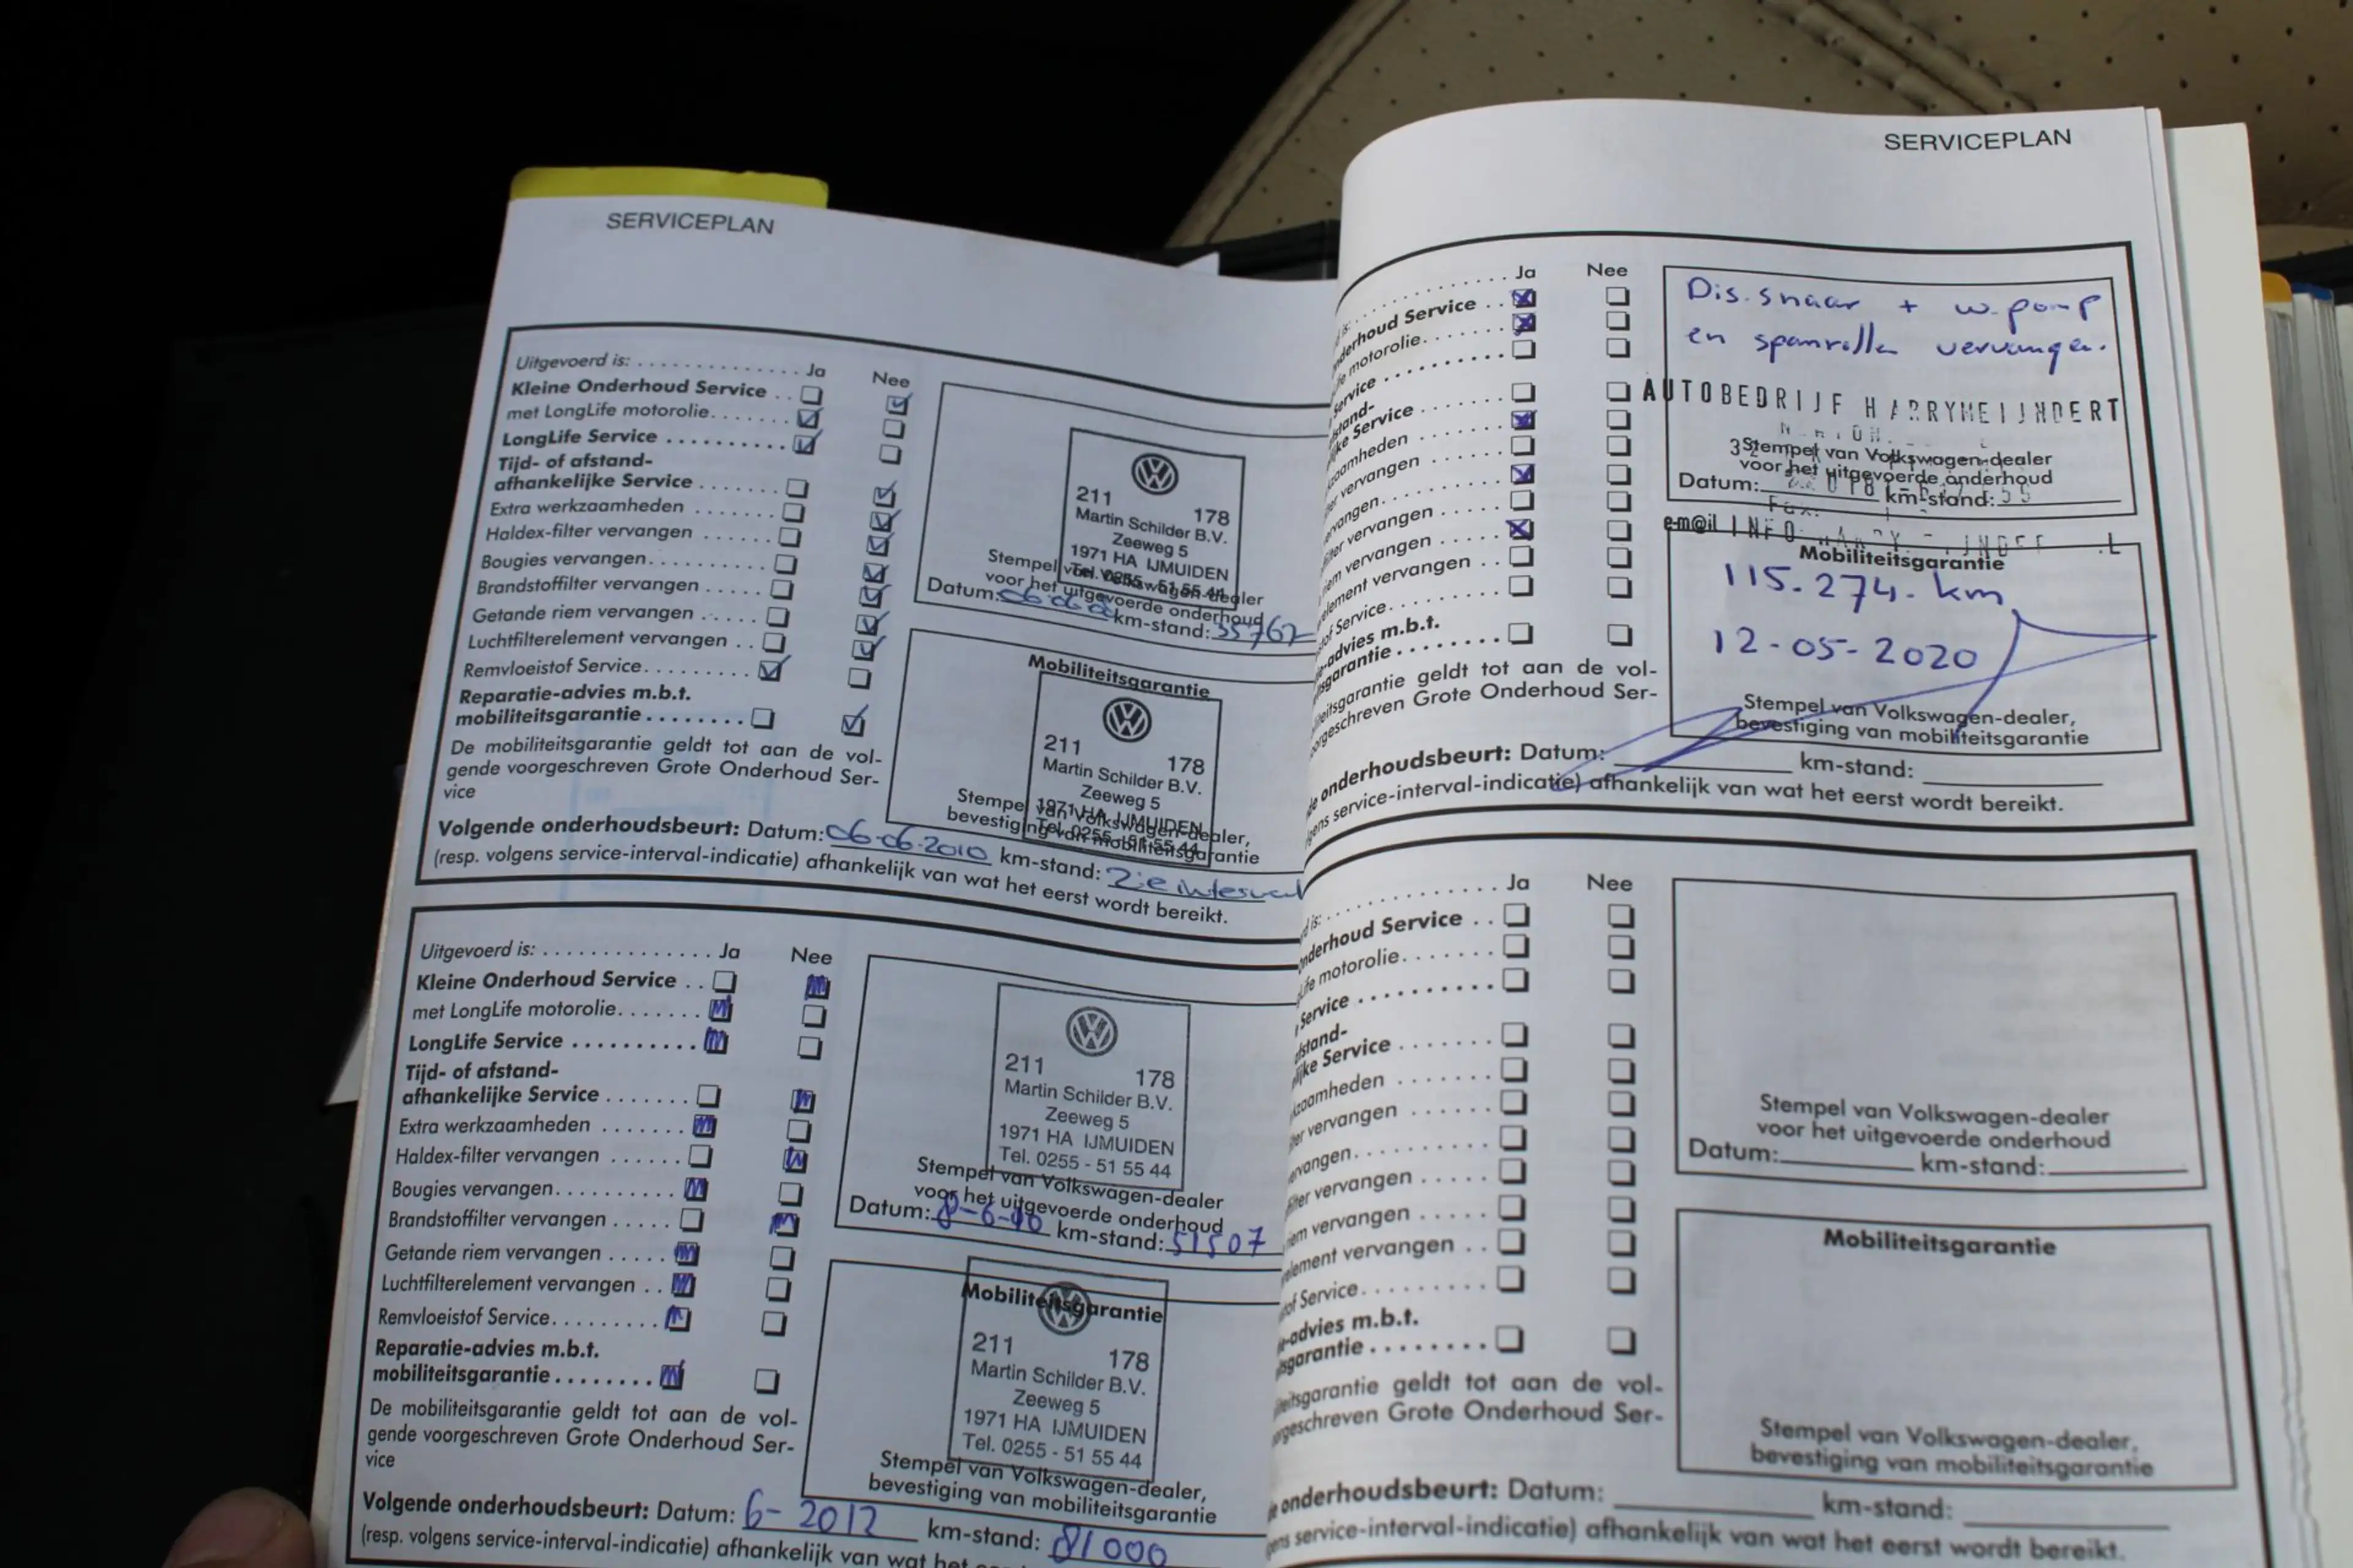 SERVICEPLAN
Uitgevoerd is: . . . . . . . . . . . . . . . Ja Nee
Kleine Onderhoud Service . .
met LongLife motorolie. . . . . . .
LongLife Service . . . . . . . . . .
Tijd- of afstand-
afhankelijke Service . . . . . . .
Extra werkzaamheden . . . . . . .
Haldex-filter vervangen . . . . . .
Bougies vervangen. . . . . . . . . .
Brandstoffilter vervangen . . . . .
Getande riem vervangen . . . . .
Luchtfilterelement vervangen . .
Remvloeistof Service. . . . . . . . .
Reparatie-advies m.b.t.
mobiliteitsgarantie . . . . . . . .
De mobiliteitsgarantie geldt tot aan de vol-
gende voorgeschreven Grote Onderhoud Ser-
vice
211 178
Martin Schilder B.V.
Zeeweg 5
1971 HA IJMUIDEN
Tel. 0255 - 51 55 44
Stempel van Volkswagen-dealer
voor het uitgevoerde onderhoud
Datum: km-stand: 35762
Mobiliteitsgarantie
211 178
Martin Schilder B.V.
Zeeweg 5
1971 HA IJMUIDEN
Tel. 0255 - 51 55 44
Stempel van Volkswagen-dealer,
bevestiging van mobiliteitsgarantie
Volgende onderhoudsbeurt: Datum: 06-06-2010 km-stand: Zie interval
(resp. volgens service-interval-indicatie) afhankelijk van wat het eerst wordt bereikt.
Uitgevoerd is: . . . . . . . . . . . . . . Ja Nee
Kleine Onderhoud Service . .
met LongLife motorolie. . . . . . .
LongLife Service . . . . . . . . . .
Tijd- of afstand-
afhankelijke Service . . . . . . .
Extra werkzaamheden . . . . . . .
Haldex-filter vervangen . . . . . .
Bougies vervangen. . . . . . . . . .
Brandstoffilter vervangen . . . . .
Getande riem vervangen . . . . .
Luchtfilterelement vervangen . .
Remvloeistof Service. . . . . . . . .
Reparatie-advies m.b.t.
mobiliteitsgarantie . . . . . . . .
De mobiliteitsgarantie geldt tot aan de vol-
gende voorgeschreven Grote Onderhoud Ser-
vice
211 178
Martin Schilder B.V.
Zeeweg 5
1971 HA IJMUIDEN
Tel. 0255 - 51 55 44
Stempel van Volkswagen-dealer
voor het uitgevoerde onderhoud
Datum: 8-6-10 km-stand: 51507
Mobiliteitsgarantie
211 178
Martin Schilder B.V.
Zeeweg 5
1971 HA IJMUIDEN
Tel. 0255 - 51 55 44
Stempel van Volkswagen-dealer,
bevestiging van mobiliteitsgarantie
Volgende onderhoudsbeurt: Datum: 6-2012 km-stand: 81000
(resp. volgens service-interval-indicatie) afhankelijk van wat het
SERVICEPLAN
Ja Nee
derhoud Service . .
motorolie. . . . . . .
Service . . . . . . . . . .
stand-
ke Service . . . . . . .
zaamheden . . . . . . .
er vervangen . . . . . .
rvangen. . . . . . . . . .
filter vervangen . . . . .
iem vervangen . . . . .
element vervangen . .
of Service. . . . . . . . .
-advies m.b.t.
sgarantie . . . . . . . .
iteitsgarantie geldt tot aan de vol-
orgeschreven Grote Onderhoud Ser-
Dis.snaar + w.pomp
en spanrollen vervangen.
AUTOBEDRIJF HARRYMEIJNDERT
Stempel van Volkswagen-dealer
voor het uitgevoerde onderhoud
Datum: km-stand:
e-m@il INFO
Mobiliteitsgarantie
115.274. km
12-05-2020
Stempel van Volkswagen-dealer,
bevestiging van mobiliteitsgarantie
onderhoudsbeurt: Datum: km-stand:
ens service-interval-indicatie) afhankelijk van wat het eerst wordt bereikt.
d is: . . . . . . . . . . . . . . Ja Nee
nderhoud Service . .
Life motorolie. . . . . . .
Service . . . . . . . . . .
fstand-
ijke Service . . . . . . .
kzaamheden . . . . . . .
lter vervangen . . . . . .
ervangen. . . . . . . . . .
filter vervangen . . . . .
iem vervangen . . . . .
element vervangen . .
of Service. . . . . . . . .
-advies m.b.t.
sgarantie . . . . . . . .
iteitsgarantie geldt tot aan de vol-
orgeschreven Grote Onderhoud Ser-
Stempel van Volkswagen-dealer
voor het uitgevoerde onderhoud
Datum: km-stand:
Mobiliteitsgarantie
Stempel van Volkswagen-dealer,
bevestiging van mobiliteitsgarantie
onderhoudsbeurt: Datum: km-stand:
ens service-interval-indicatie) afhankelijk van wat het eerst wordt bereikt.